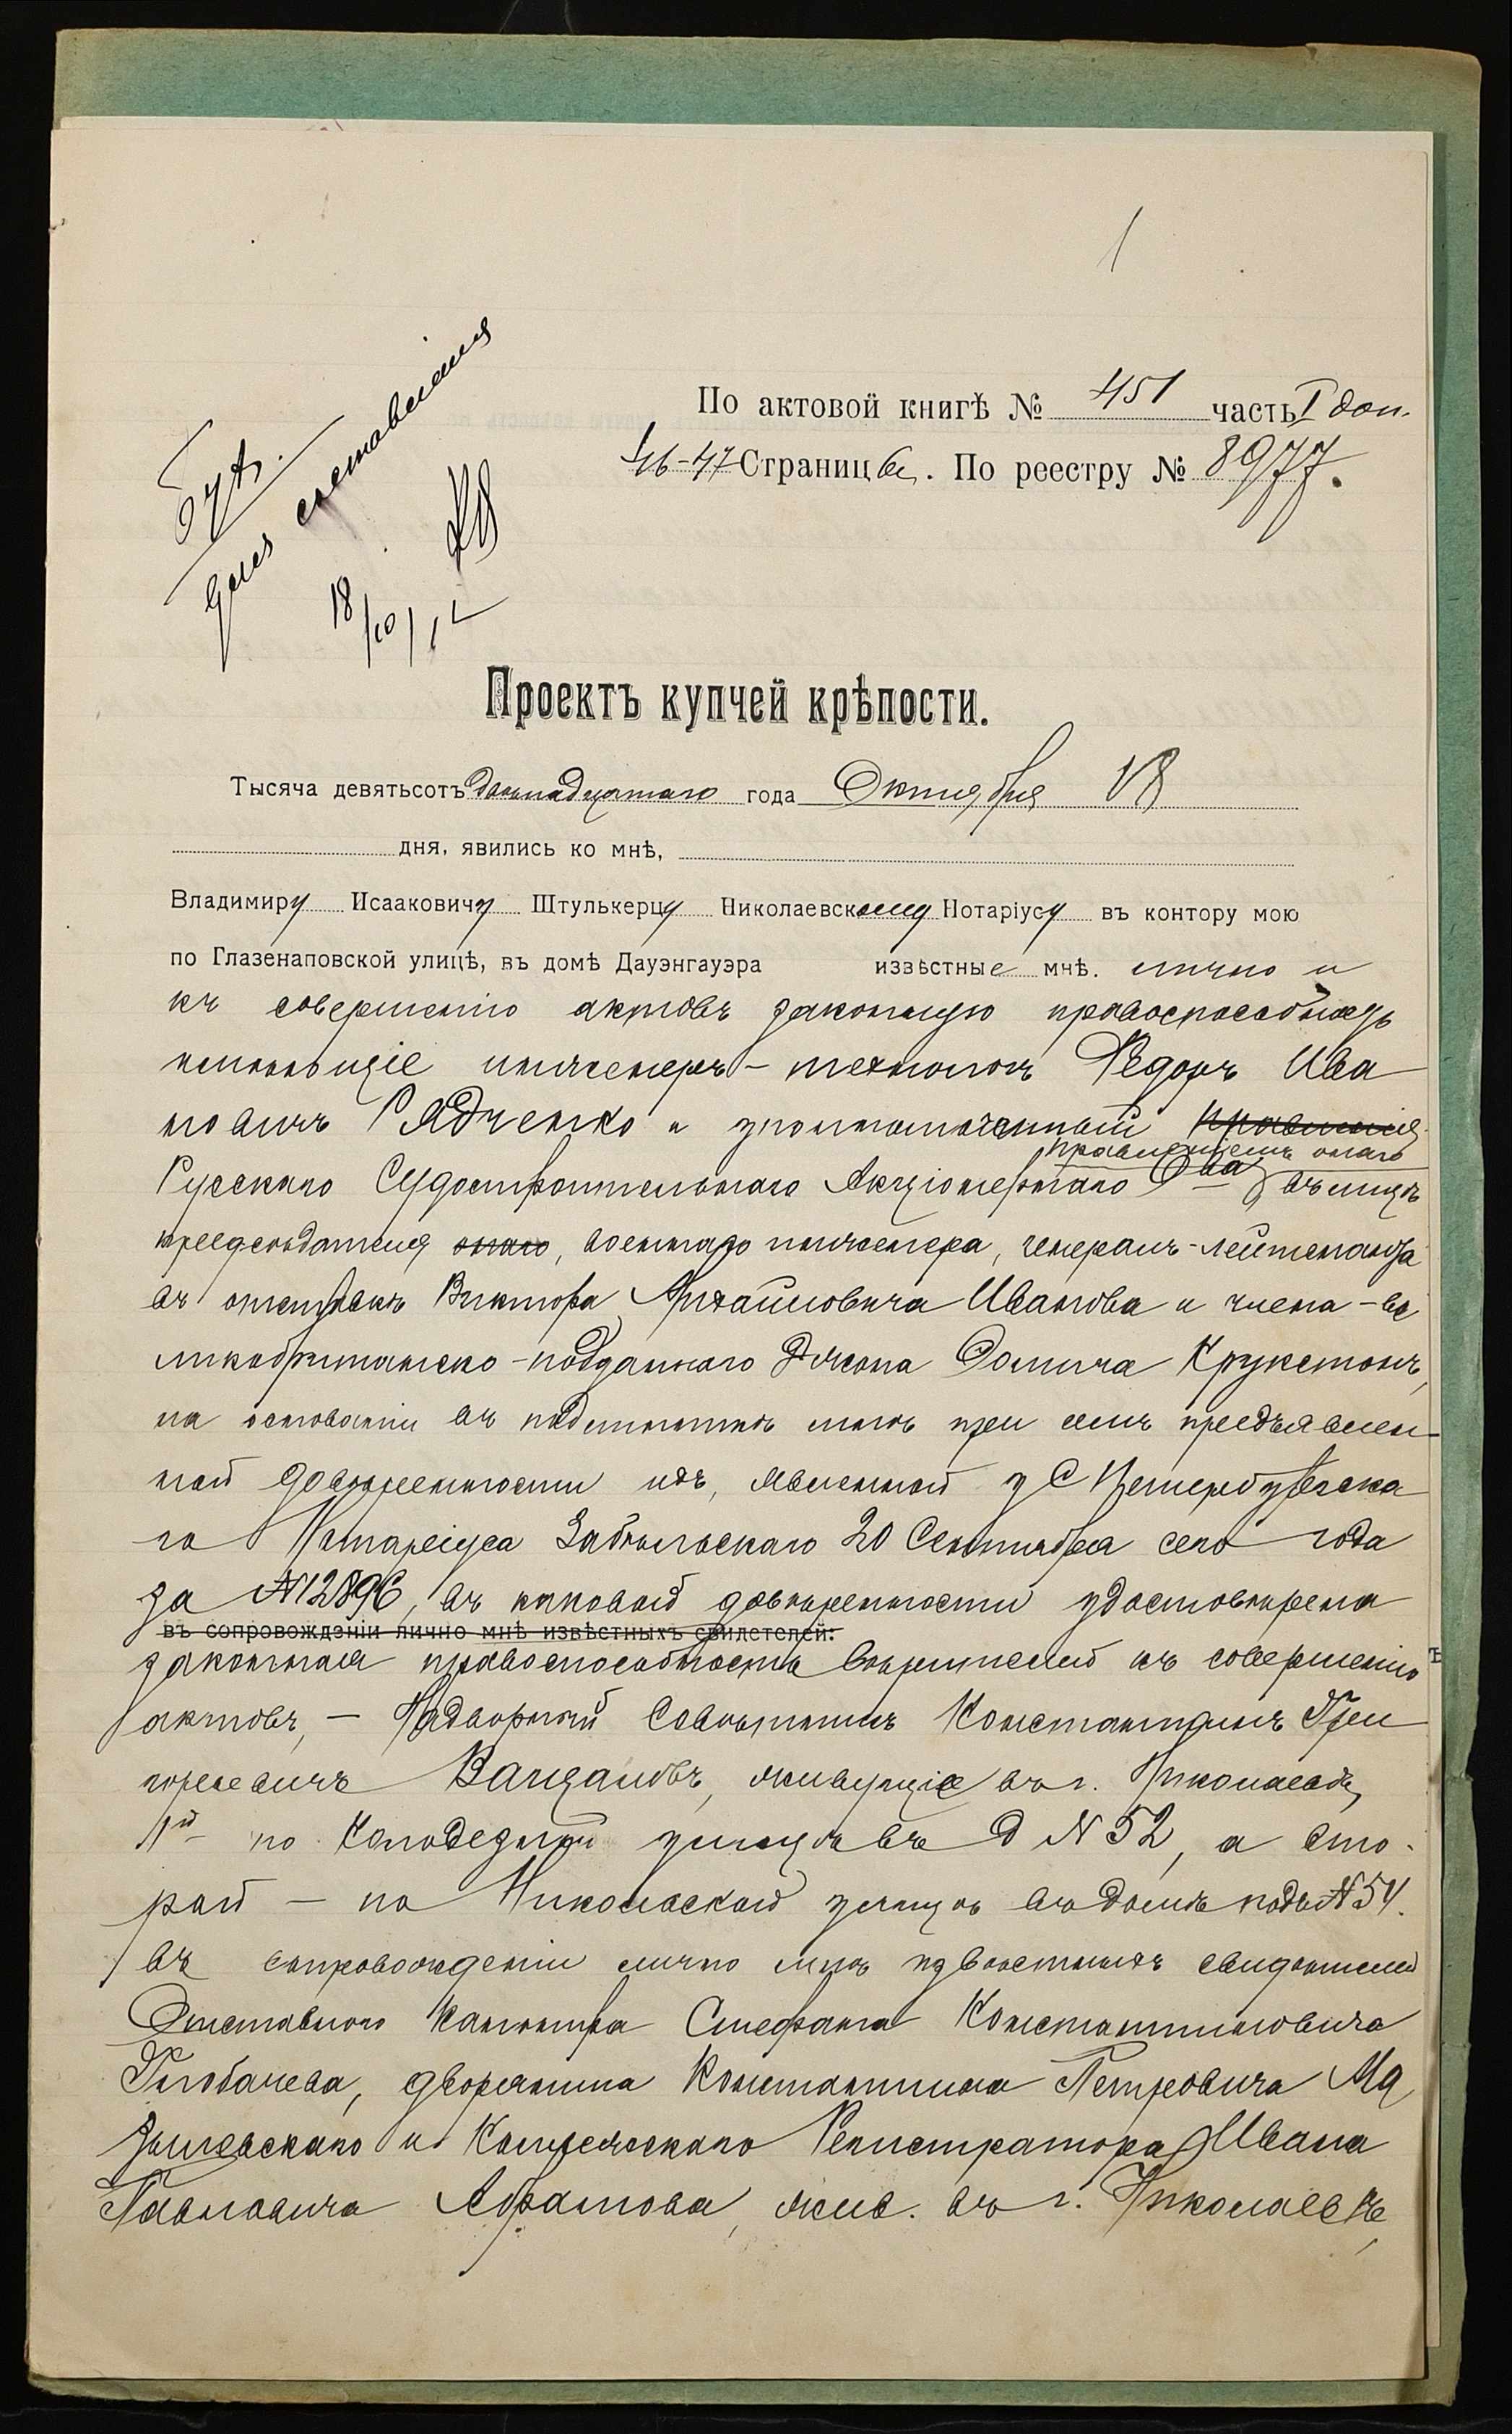 1
По актовой книгѣ № 451 часть I доп.
46-47 Страницы. По реестру № 8977.
для
18/10/12
Проектъ купчей крѣпости.
Тысяча девятьсотъ двѣнадцатаго года Октября 18
дня, явились ко мнѣ,
Владимиру Исааковичу Штулькерцу Николаевскому Нотаріусу въ контору мою
по Глазенаповской улицѣ, въ домѣ Дауэнгауэра известные мнѣ. лично и
къ совершенію актовъ законную правоспособность
имѣющіе инженеръ-технологъ Федоръ Ива
новичъ Радченко и уполномоченный правленія
правленіемъ онаго
Русскаго Судостроительнаго Акціонернаго О-ва въ лицѣ
предсѣдателя онаго, военнаго инженера, генералъ-лейтенанта
въ отставкѣ Виктора Михайловича Иванова и члена - ве
ликобританско-подданнаго Джона Крукстонъ,
на основаніи въ подлинникѣ мнѣ при семъ предъявлен-
ной довѣренности ихъ, явленной у С Петербургска
го Нотаріуса 20 Сентября сего года
за №12896, въ каковой довѣренности удостовѣрена
въ сопровожденіи лично мнѣ извѣстныхъ свидетелей:
законная правоспособность вѣрителей къ совершенію
актовъ, - Надворный Совѣтникъ Константинъ Гри
горьевичъ живущіе въ г. Николаевѣ,
1й по Колодезной улицѣ въ д №52, а вто-
рой - по Никольской улицѣ въ домѣ подъ №54.
въ сопровожденіи лично мнѣ извѣстныхъ свидѣтелей
Отставного Стефана Константиновича
дворянина Константина Петровича Ма
и Коллежскаго Регистратора Ивана
Павловича Абрамова, жив. въ г. Николаевѣ,